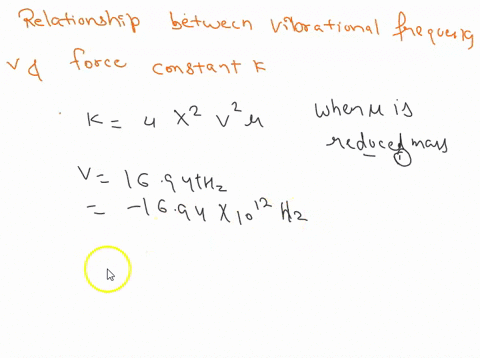 Relationship between vibrational frequency
v & force constant k
K = 4 X² V² μ
when μ is
reduced mass
V = 16.94 tHz
= -16.94 X 10¹² Hz